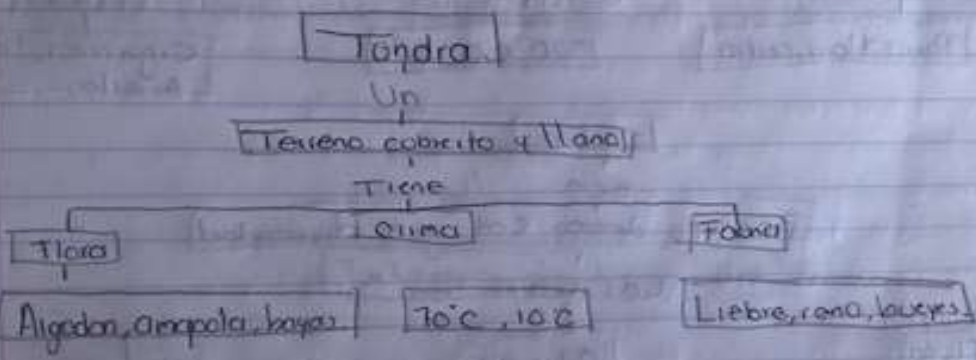 Tundra
Un
Terreno cobierto y llano
Tiene
Flora Clima Fauna
Algodon, amapola, bayas 70°C, 10°C Liebre, rana, bueyes